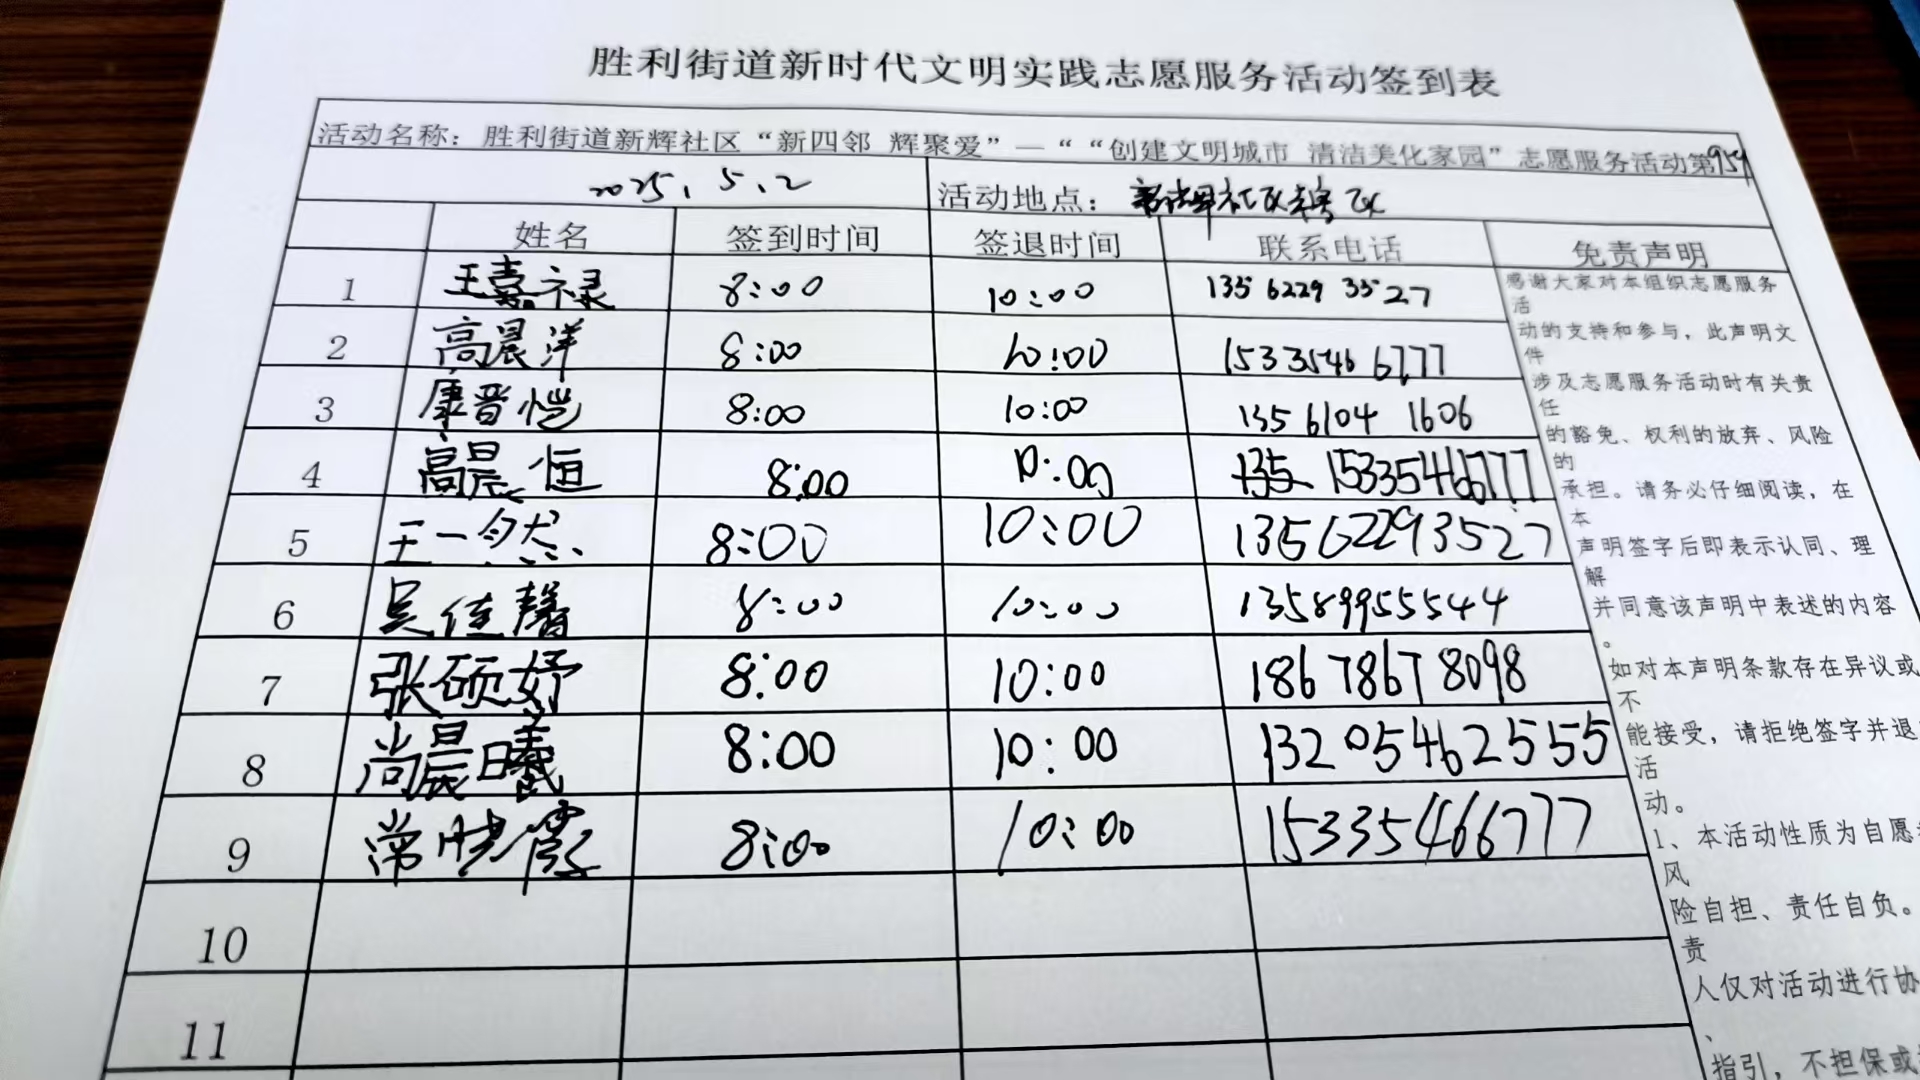 胜利街道新时代文明实践志愿服务活动签到表
活动名称：胜利街道新辉社区“新四邻 辉聚爱”—““创建文明城市 清洁美化家园”志愿服务活动第959
2025、5、2 活动地点：新辉社区辖区
姓名 签到时间 签退时间 联系电话 免责声明
1 王嘉禄 8:00 10:00 135 6229 3527
2 高晨洋 8:00 10:00 15335466777
3 康晋恺 8:00 10:00 135 6104 1606
4 高晨恒 8:00 10:00 135 15335466777
5 王一然 8:00 10:00 13562293527
6 吴佳馨 8:00 10:00 13589955544
7 张硕妤 8:00 10:00 18678678098
8 尚晨曦 8:00 10:00 13205462555
9 常晓霞 8:00 10:00 15335466777
10
11
感谢大家对本组织志愿服务
活
动的支持和参与，此声明文
件
涉及志愿服务活动时有关责
任
的豁免、权利的放弃、风险
的
承担。请务必仔细阅读，在
本
声明签字后即表示认同、理
解
并同意该声明中表述的内容
。
如对本声明条款存在异议或
不
能接受，请拒绝签字并退
活
动。
1、本活动性质为自愿
风
险自担、责任自负。
责
人仅对活动进行协
、
指引，不担保或